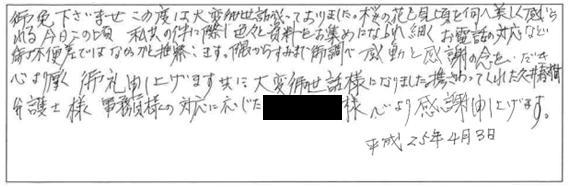 御免下さいませ この度は大変御世話様っておりました。桜の花を見上頃を何へ美しく感じ
られる今日この頃 私共の件に際し色々と資料をお集めになられ細くお電話の対応など
ではなのかと推察します。隈からすみまで御調べ感動と感謝の念を
心より厚く御礼申上げます共に大変御世話様になりました。携さわってくれた久井春樹
弁護士様 事務員様の対応に応じた 様 心より感謝申上げます。
平成25年4月3日